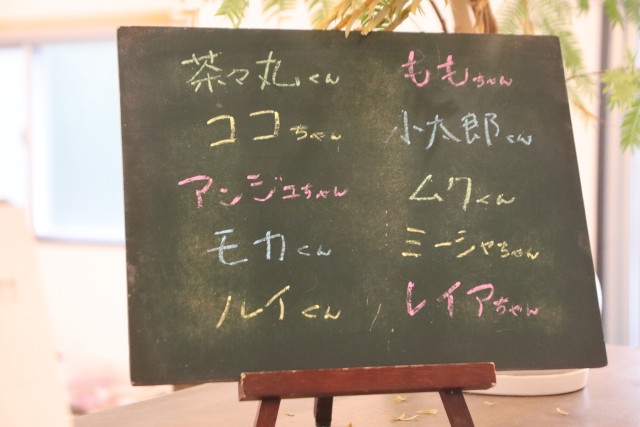 茶々丸くん ももちゃん
ココちゃん 小太郎くん
アンジュちゃん ムクくん
モカくん ミーシャちゃん
ルイくん レイアちゃん